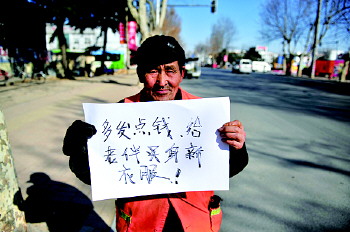 多发点钱,给
老伴买身新
衣服!